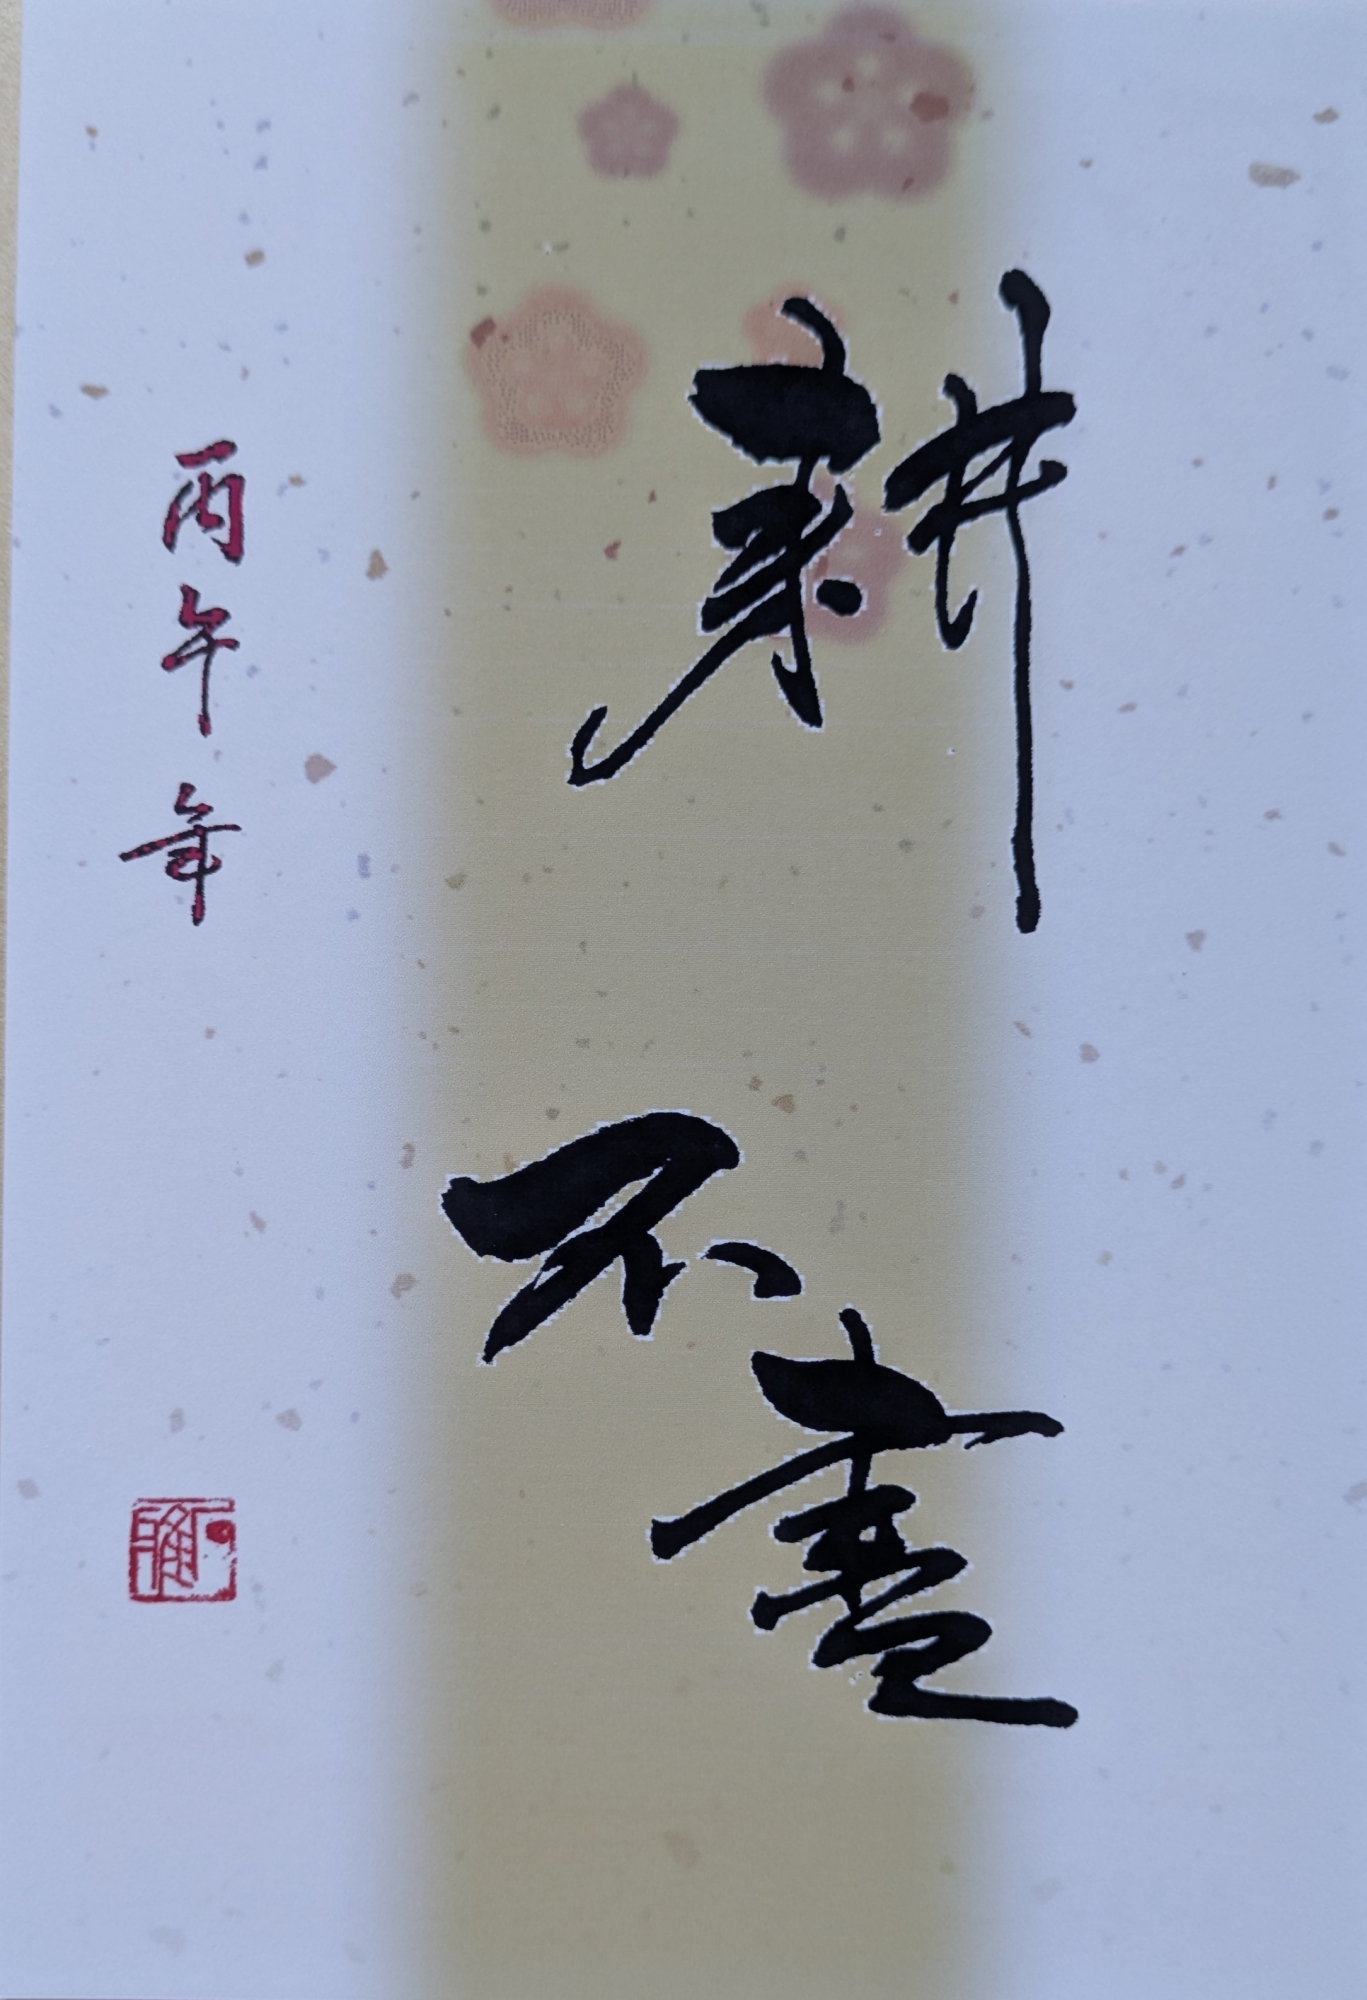 耕不盡
丙午年